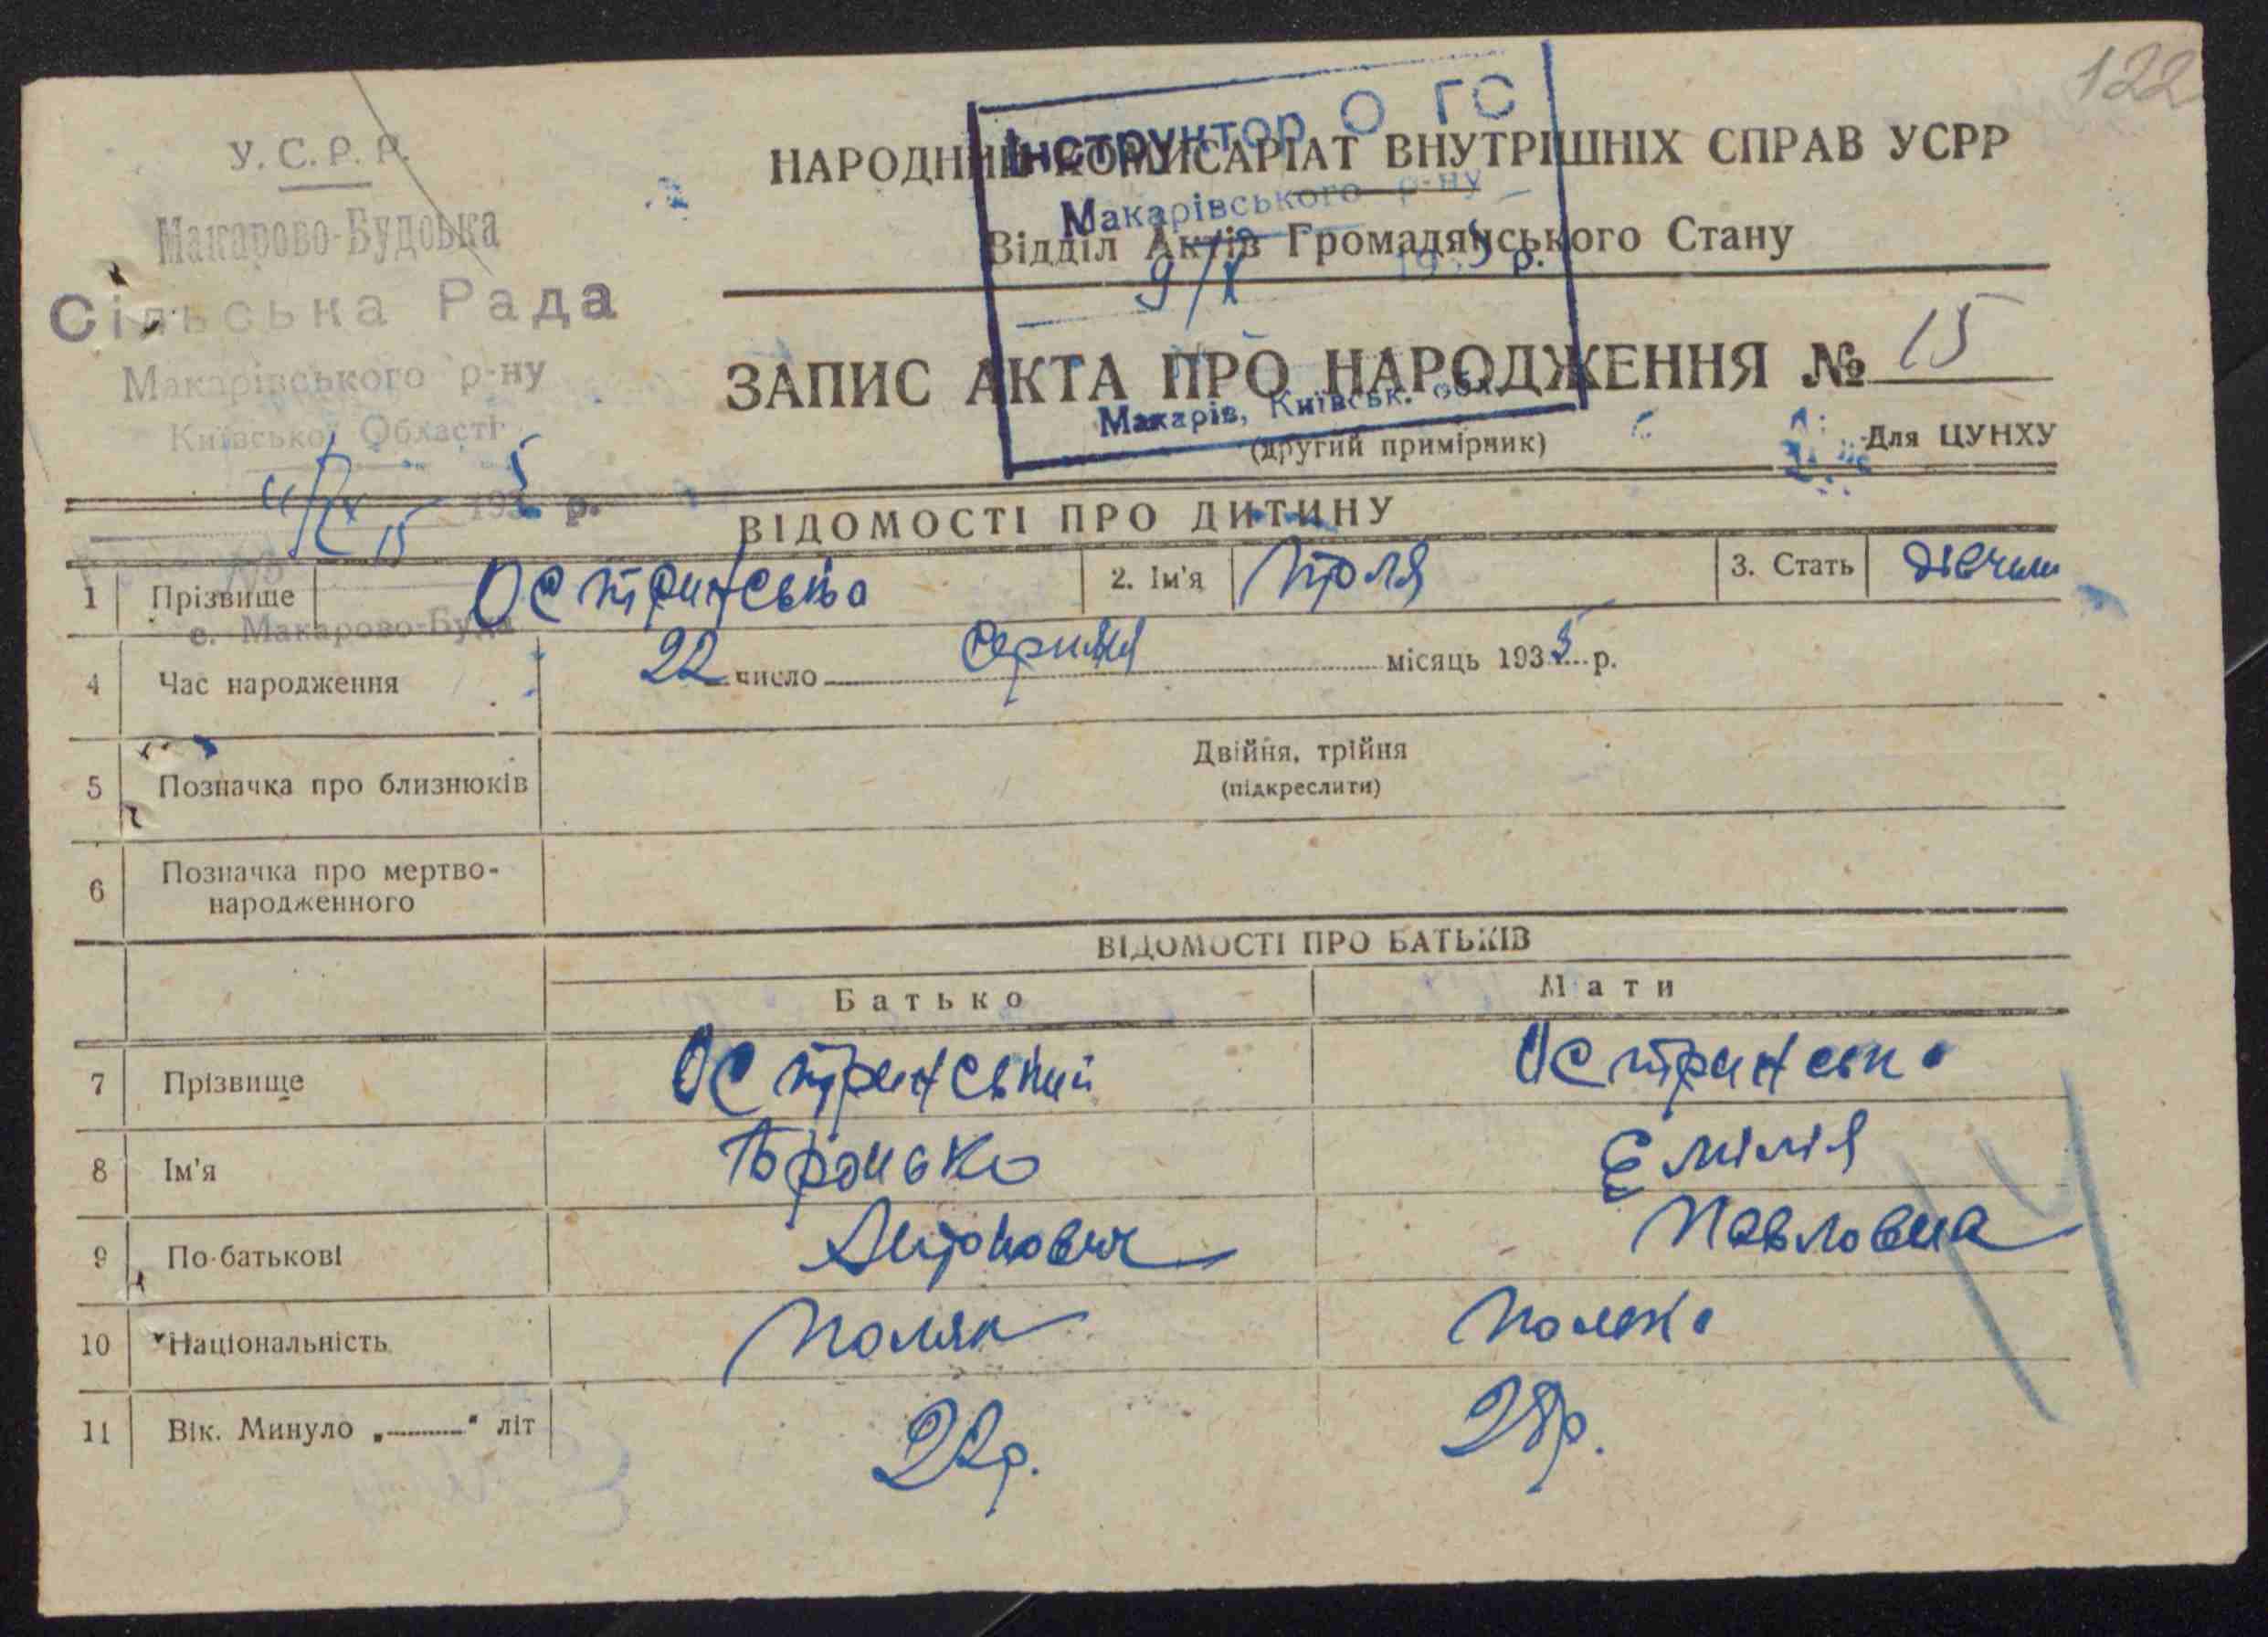 122
У.С.Р.Р.
Макарово-Будовька
Сільська Рада
Макарівського р-ну
Київської Області
4/IX 1935 р.
№ 15
с. Макарово-Буда
Інструктор О ГС
Макарівського р-ну
9/X 1935 р.
Макарів, Київськ. обл.
НАРОДНИЙ КОМІСАРІАТ ВНУТРІШНІХ СПРАВ УСРР
Відділ Актів Громадянського Стану
ЗАПИС АКТА ПРО НАРОДЖЕННЯ № 15
(другий примірник)
Для ЦУНХУ
ВІДОМОСТІ ПРО ДИТИНУ
1 Прізвище Остринська 2. Ім'я 3. Стать дівчин
4 Час народження 22 число Серпня місяць 1935 р.
5 Позначка про близнюків Двійня, трійня
(підкреслити)
6 Позначка про мертво-
народженного
ВІДОМОСТІ ПРО БАТЬКІВ
Батько Мати
7 Прізвище Остринський Остринська
8 Ім'я Бронько Емілія
9 По-батькові Павловна
10 Національність поляк полька
11 Вік. Минуло „ “ літ 22р. 28р.